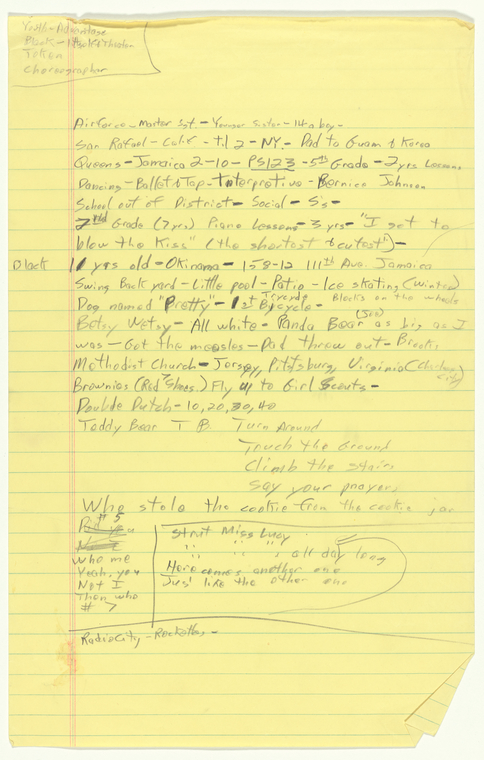 Youth - Advantage
Black -
Token
Choreographer
Airforce - Master Sgt. - Younger Sister - 14 a boy -
San Rafael - Calif - til 2 - NY. - Dad to Guam & Korea
Queens - Jamaica 2-10 - PS123 - 5th Grade - 2 yrs Lessons
Dancing - Ballet & Tap - Interpretive - Bernice Johnson
School out of District - Social - S's -
2nd Grade (7yrs) Piano Lessons - 3 yrs - "I get to
blow the Kiss" (the shortest & cutest") -
Black 11 yrs old - Okinawa - 158-12 111th Ave. Jamaica
Swing Back yard - Little pool - Patio - Ice skating (winter)
Dog named "Pretty" - 1st Bicycle - Blocks on the wheels
Betsy Wetsy - All white - Panda Bear as big as I
was - Got the measles - Dad threw out -
Methodist Church - Jersey, Pittsburg, Virginia
Brownies (Red Shoes.) Fly up to Girl Scouts -
Double Dutch - 10, 20, 30, 40
Teddy Bear T B Turn Around
Touch the Ground
Climb the stairs
Say your prayers
Who stole the cookie from the cookie jar
# 5
who me
Yeah, you
Not I
Then who
# 7
Strut Miss Lucy
" " " all day long
Here comes another one
Jus' like the other one
RadioCity - Rockettes -